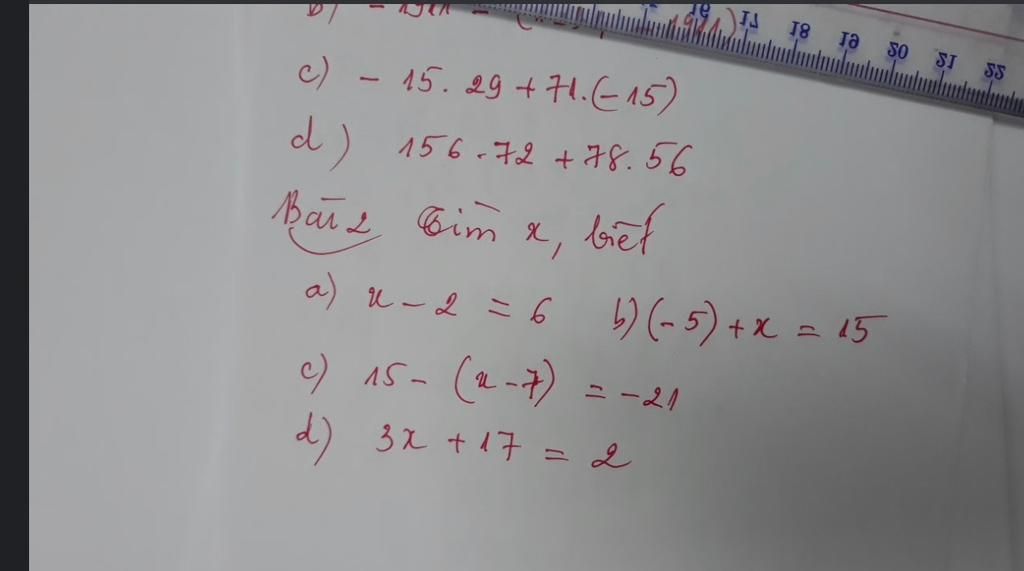 16 17 18 19 20 21 22
c) - 15. 29 + 71. (-15)
d) 156. 72 + 78. 56
Bài 2 Tìm x, biết
a) x - 2 = 6 b) (-5) + x = 15
c) 15 - (x - 7) = -21
d) 3x + 17 = 2